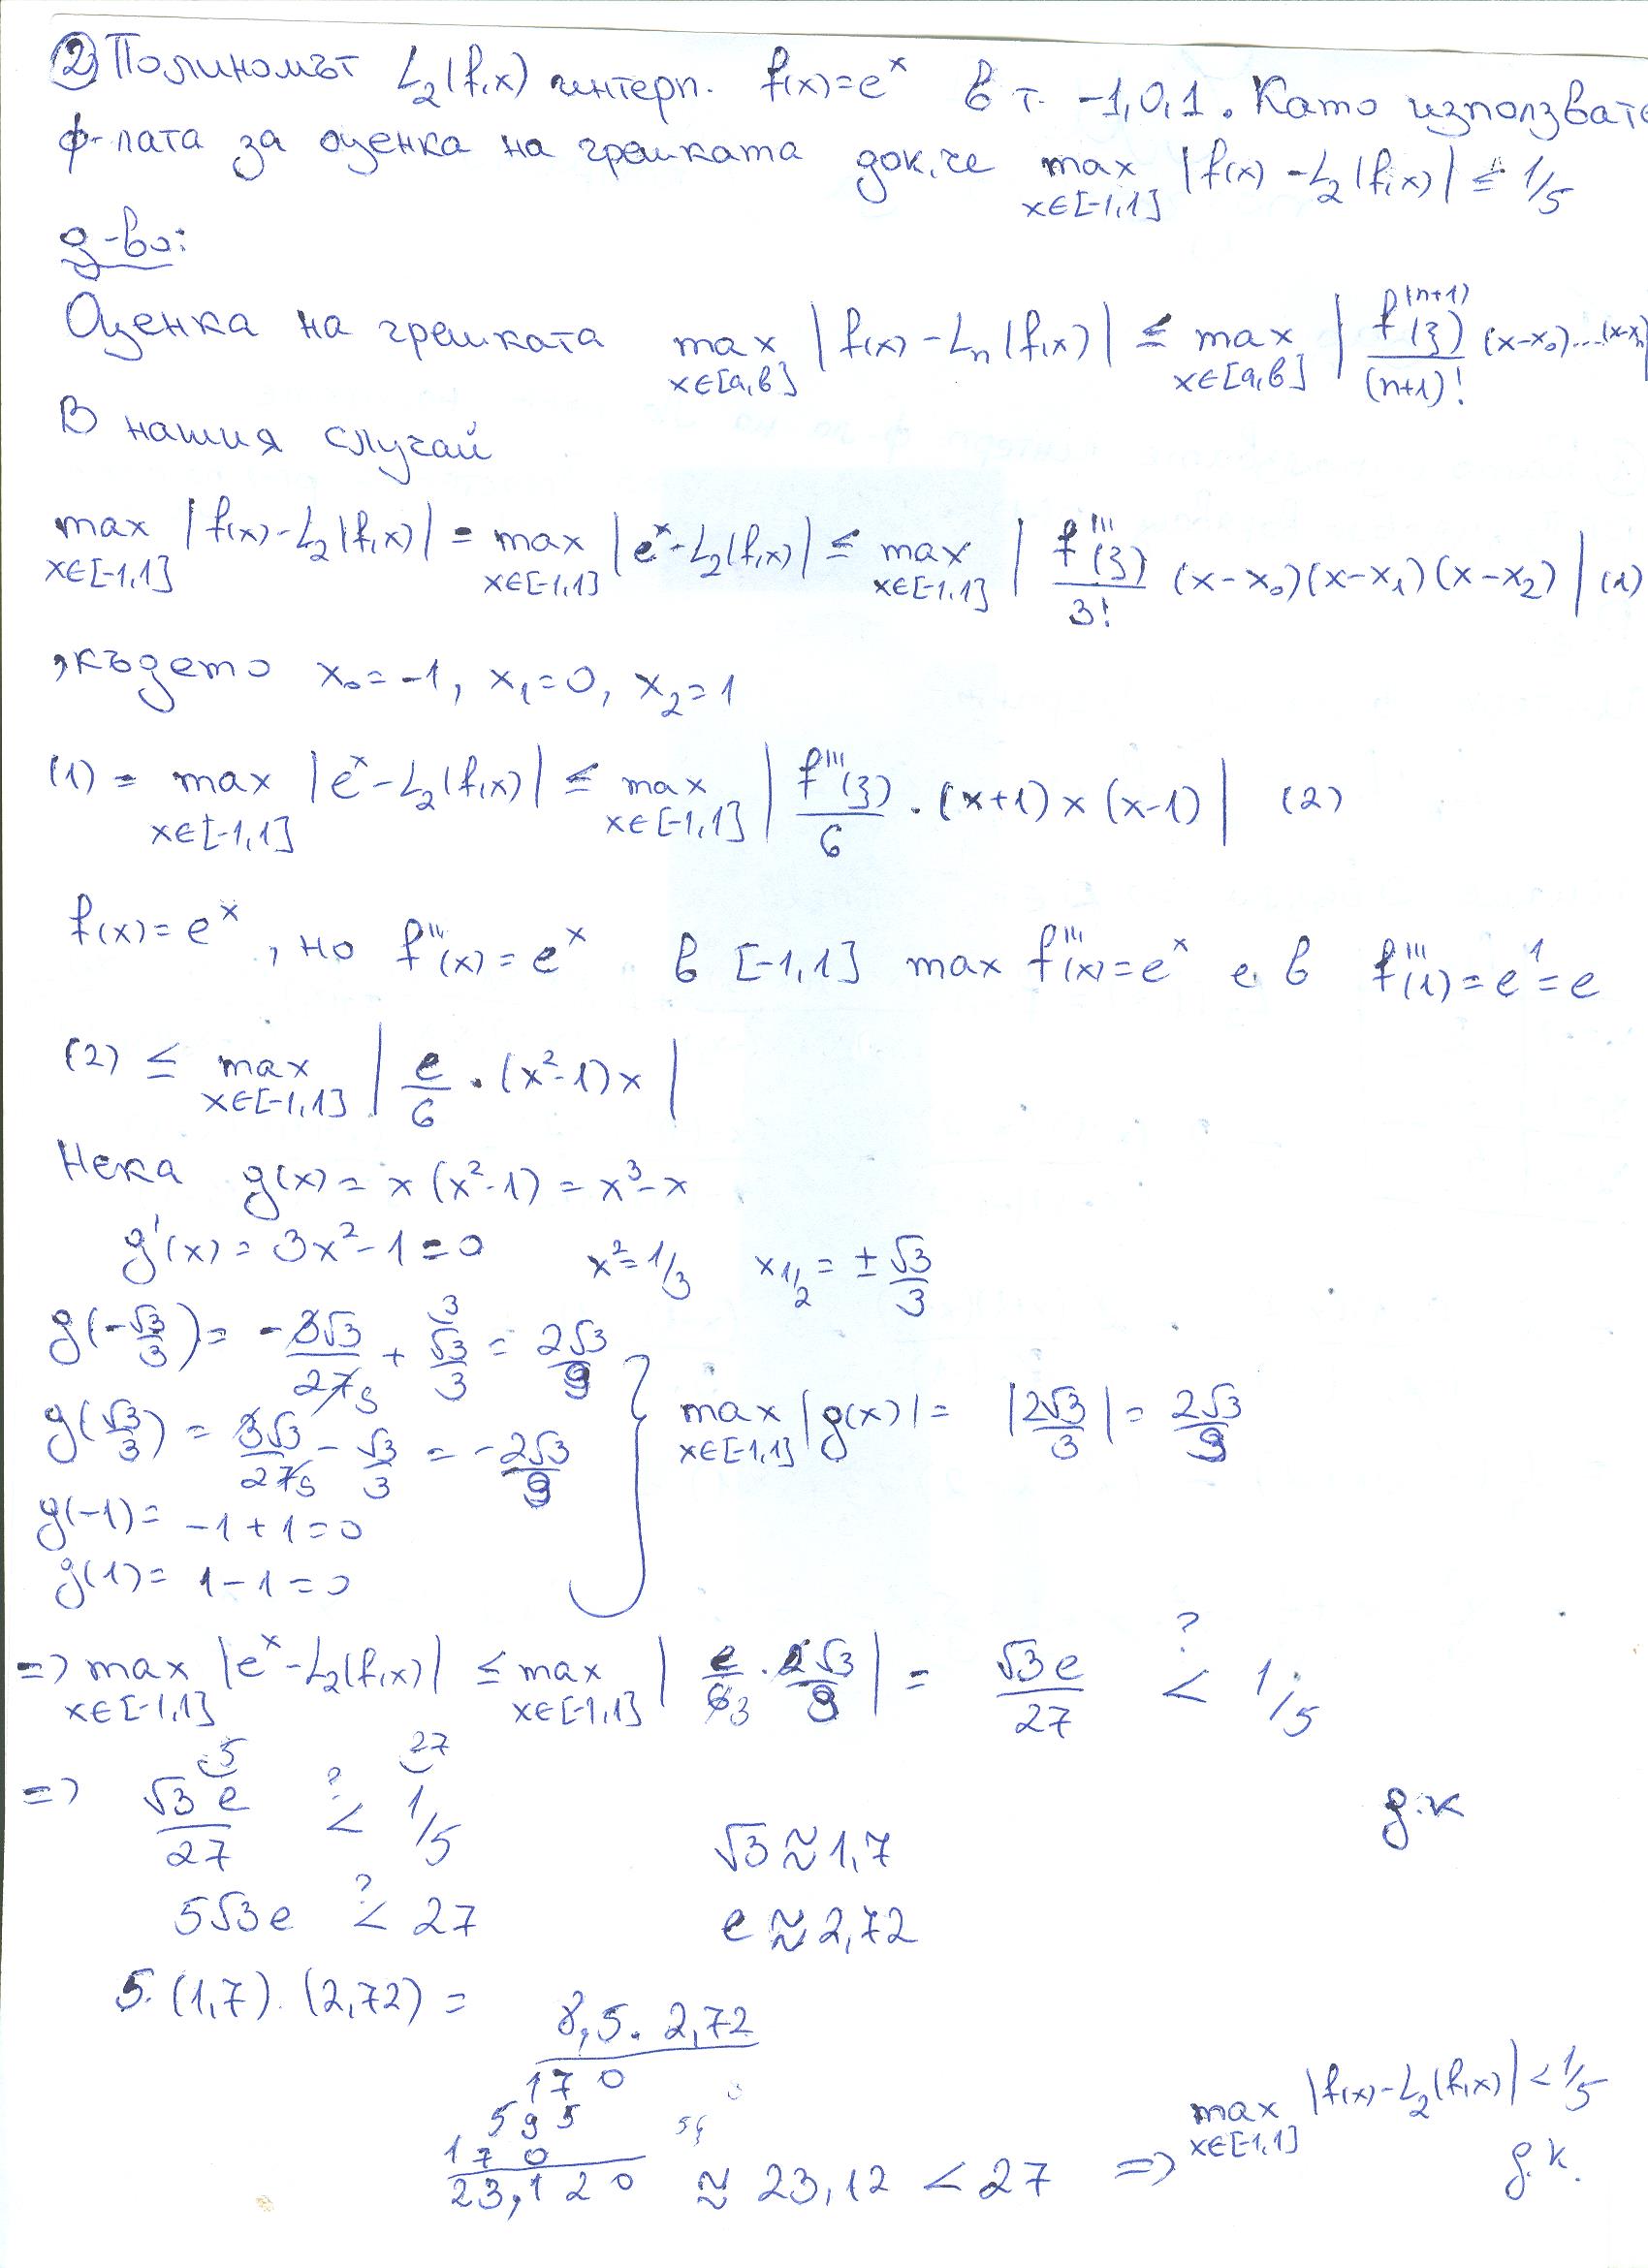 ② Полиномът L₂(f,x) интерп. f(x)=eˣ в т. -1,0,1. Като използвате
ф-лата за оценка на грешката док. че max x∈[-1,1] |f(x) - L₂(f,x)| ≤ 1/5
д-во:
Оценка на грешката max x∈[a,b] |f(x) - Lₙ(f,x)| ≤ max x∈[a,b] | f⁽ⁿ⁺¹⁾(ξ)/(n+1)! (x-x₀)....(x-xₙ)|
В нашия случай
max x∈[-1,1] |f(x) - L₂(f,x)| = max x∈[-1,1] |eˣ - L₂(f,x)| ≤ max x∈[-1,1] | f'''(ξ)/3! (x-x₀)(x-x₁)(x-x₂) | (1)
, където x₀ = -1, x₁ = 0, x₂ = 1
(1) = max x∈[-1,1] |eˣ - L₂(f,x)| ≤ max x∈[-1,1] | f'''(ξ)/6 . (x+1) x (x-1) | (2)
f(x) = eˣ, но f'''(x) = eˣ в [-1,1] max f'''(x) = eˣ е в f'''(1) = e¹ = e
(2) ≤ max x∈[-1,1] | e/6 . (x²-1)x |
Нека g(x) = x(x²-1) = x³-x
g'(x) = 3x²-1 = 0 x² = 1/3 x1/2 = ± √3/3
g(-√3/3) = -3√3/27 9 + √3/3 3 = 2√3/9
g(√3/3) = 3√3/27 9 - √3/3 = -2√3/9
max x∈[-1,1] |g(x)| = |2√3/3| = 2√3/9
g(-1) = -1+1 = 0
g(1) = 1-1 = 0
=> max x∈[-1,1] |eˣ - L₂(f,x)| ≤ max x∈[-1,1] | e/6 3 . 2√3/9 | = √3e/27 <? 1/5
=> √3 e/27 5 <? 1/5 27
д.к
√3 ≈ 1,7
5√3e <? 27
e ≈ 2,72
5.(1,7).(2,72) =
8,5. 2,72
170
595
170
23,120 ≈ 23,12 < 27 => max x∈[-1,1] |f(x) - L₂(f,x)| < 1/5
д.к.